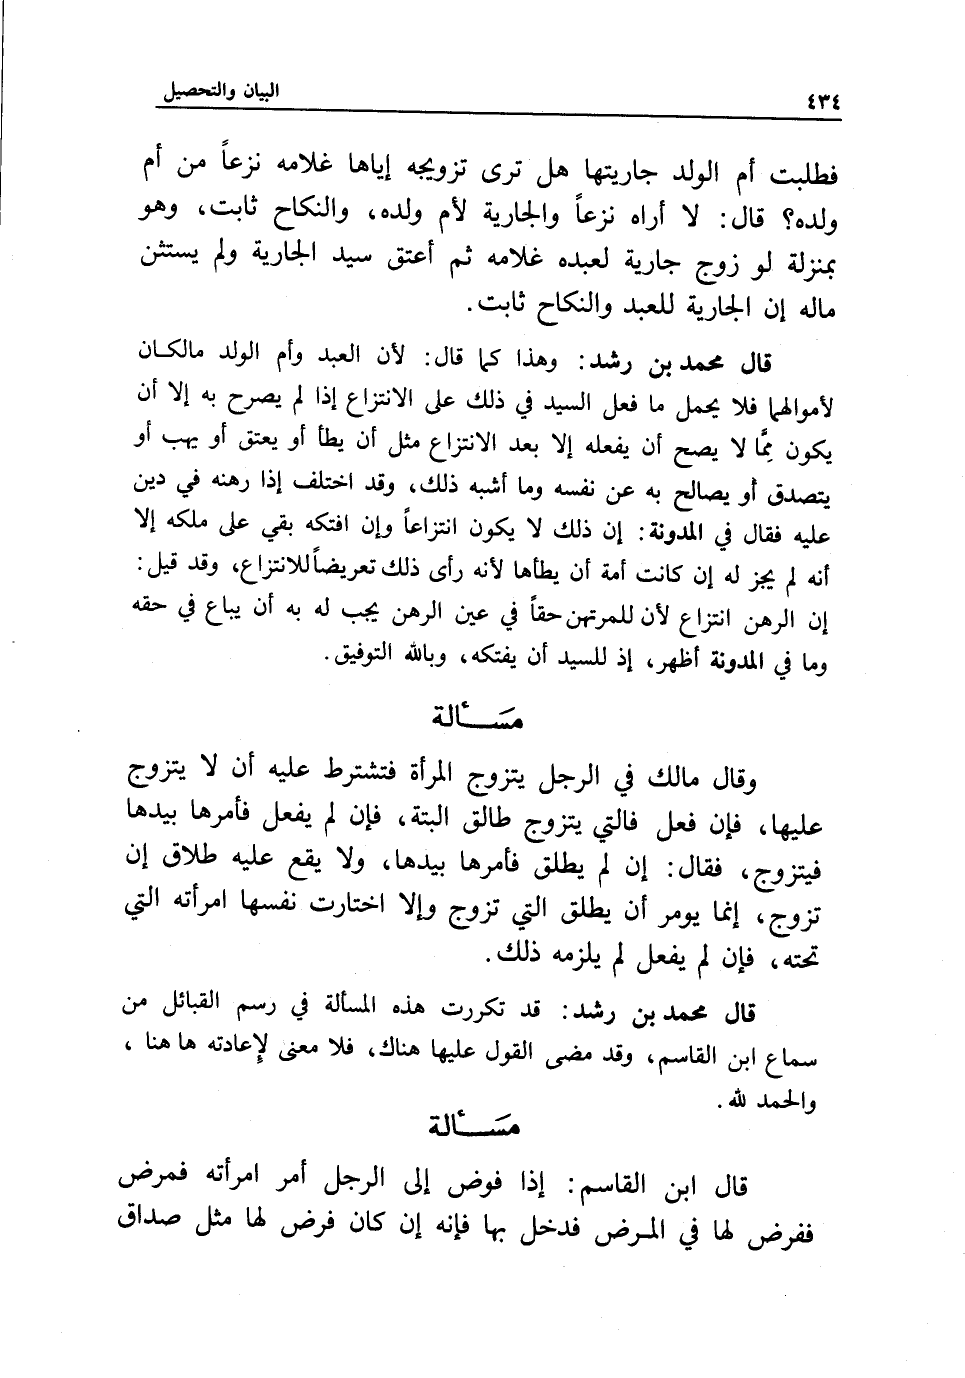 ٤٣٤
البيان والتحصيل
فطلبت أم الولد جاريتها هل ترى تزويجه إياها غلامه نزعاً من أم
ولده؟ قال: لا أراه نزعاً والجارية لأم ولده، والنكاح ثابت، وهو
بمنزلة لو زوج جارية لعبده غلامه ثم أعتق سيد الجارية ولم يستثن
ماله إن الجارية للعبد والنكاح ثابت.
قال محمد بن رشد: وهذا كما قال: لأن العبد وأم الولد مالكان
لأموالهما فلا يحمل ما فعل السيد في ذلك على الانتزاع إذا لم يصرح به إلا أن
يكون مِمَّا لا يصح أن يفعله إلا بعد الانتزاع مثل أن يطأ أو يعتق أو يهب أو
يتصدق أو يصالح به عن نفسه وما أشبه ذلك، وقد اختلف إذا رهنه في دين
عليه فقال في المدونة: إن ذلك لا يكون انتزاعاً وإن افتكه بقي على ملكه إلا
أنه لم يجز له إن كانت أمة أن يطأها لأنه رأى ذلك تعريضاً للانتزاع، وقد قيل:
إن الرهن انتزاع لأن للمرتهن حقاً في عين الرهن يجب له به أن يباع في حقه
وما في المدونة أظهر، إذ للسيد أن يفتكه، وبالله التوفيق.
مَسَــألة
وقال مالك في الرجل يتزوج المرأة فتشترط عليه أن لا يتزوج
عليها، فإن فعل فالتي يتزوج طالق البتة، فإن لم يفعل فأمرها بيدها
فيتزوج، فقال: إن لم يطلق فأمرها بيدها، ولا يقع عليه طلاق إن
تزوج، إنما يومر أن يطلق التي تزوج وإلا اختارت نفسها امرأته التي
تحته، فإن لم يفعل لم يلزمه ذلك.
قال محمد بن رشد: قد تكررت هذه المسألة في رسم القبائل من
سماع ابن القاسم، وقد مضى القول عليها هناك، فلا معنى لإعادته ها هنا ،
والحمد لله.
مَسَــألة
قال ابن القاسم: إذا فوض إلى الرجل أمر امرأته فمرض
ففرض لها في المرض فدخل بها فإنه إن كان فرض لها مثل صداق